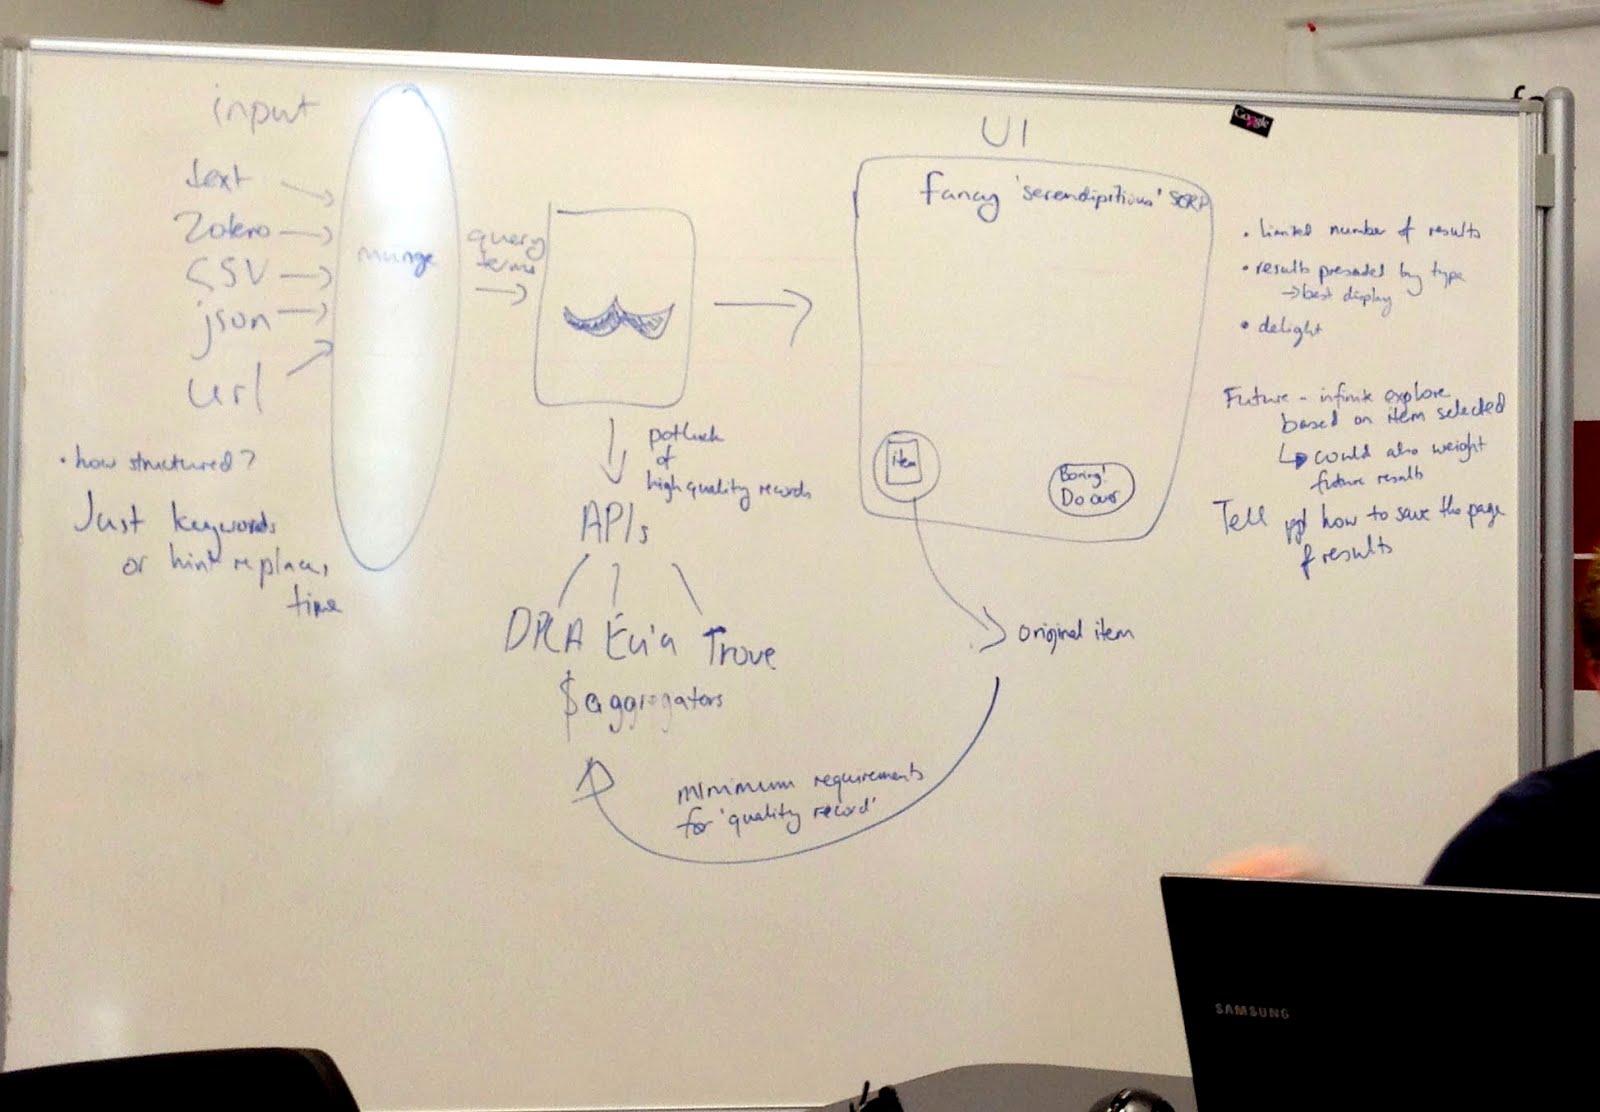 input
text
Zotero
CSV
json
url
• how structured?
Just keywords
or hint re place,
time
munge
query
terms
potluck
of
high quality records
APIs
DPLA Eu'a Trove
$aggregators
minimum requirements
for 'quality record'
UI
fancy 'serendipitious' SERP
item
Boring!
Do over
original item
• limited number of results
• results presented by type
→ best display
• delight
Future - infinite explore
based on item selected
could also weight
future results
Tell ppl how to save the page
of results
Google
SAMSUNG